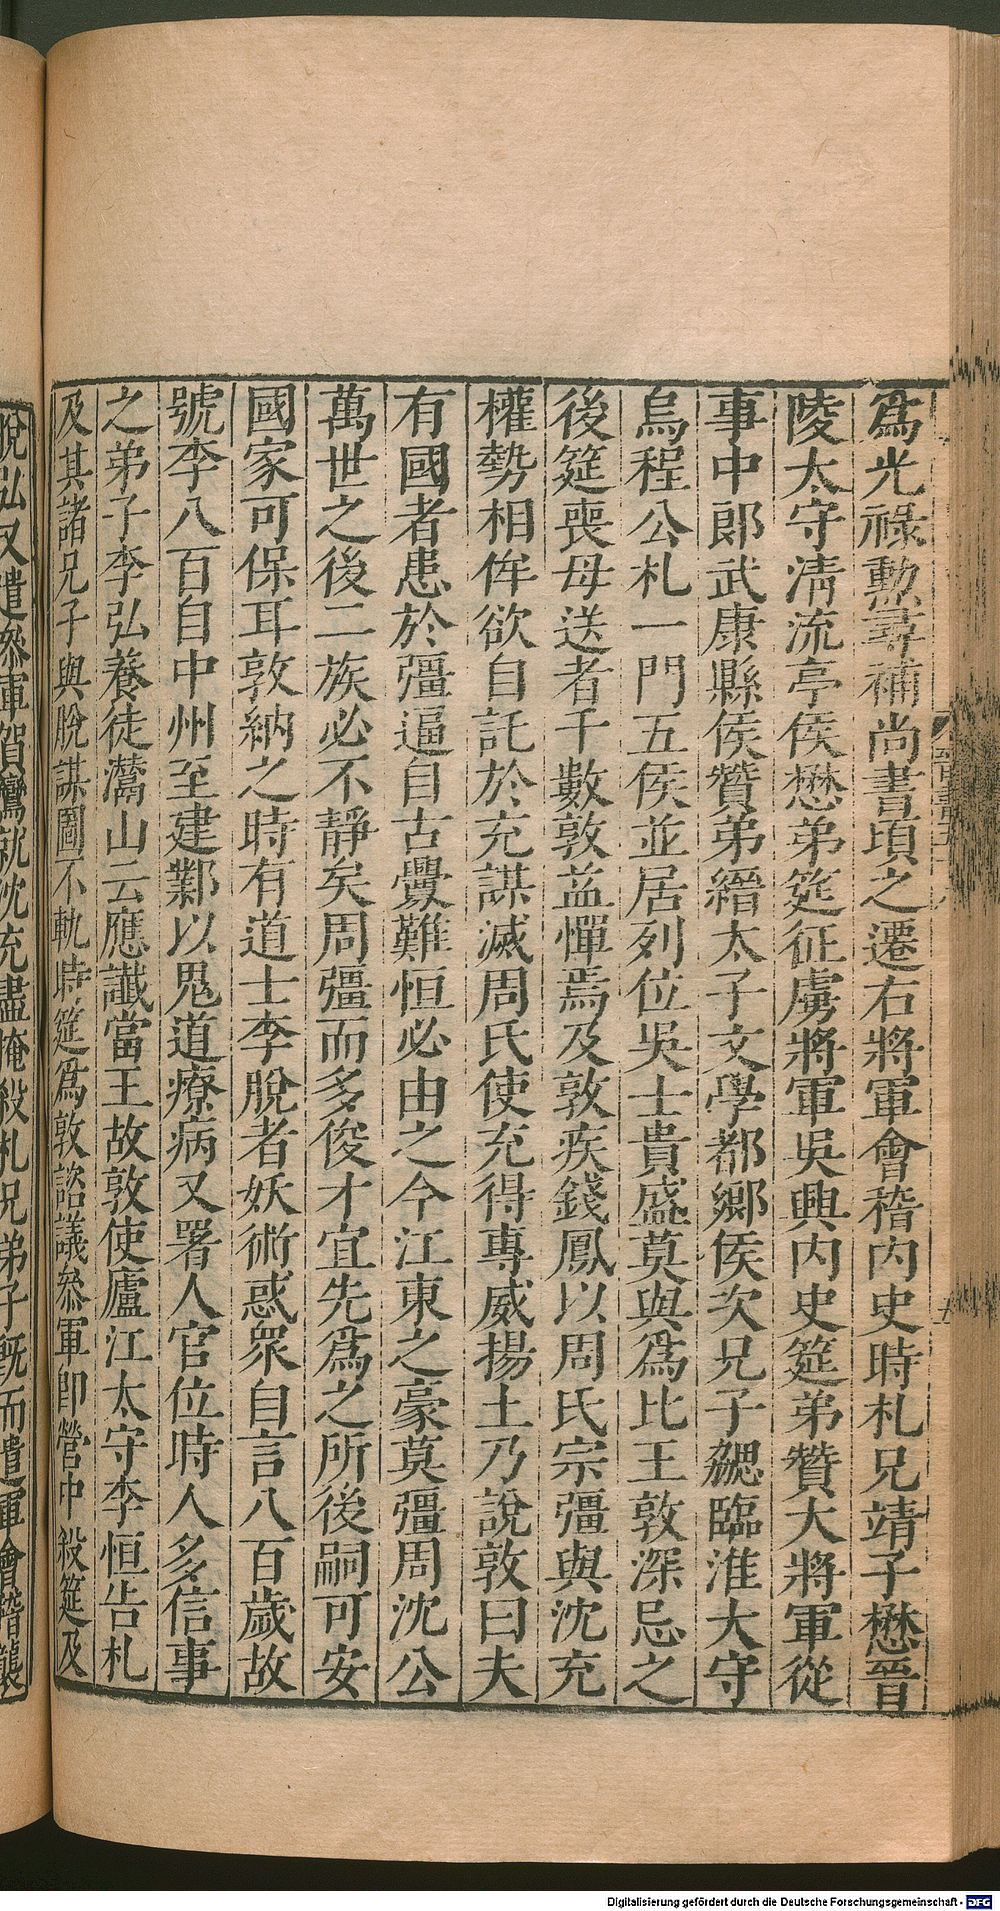 爲光祿勲尋補尚書頃之遷右將軍會稽內史時札兄靖子懋晉
陵太守淸流亭侯懋弟筵征虜將軍吳興內史筵弟贊大將軍從
事中郎武康縣侯贊弟縉太子文學都鄉侯次兄子勰臨淮太守
烏程公札一門五侯並居列位吳士貴盛莫與爲比王敦深忌之
後筵喪母送者千數敦益憚焉及敦疾錢鳳以周氏宗彊與沈充
權勢相侔欲自託於充謀滅周氏使充得專威揚土乃說敦曰夫
有國者患於彊逼自古釁難恒必由之今江東之豪莫彊周沈公
萬世之後二族必不靜矣周彊而多俊才宜先爲之所後嗣可安
國家可保耳敦納之時有道士李脫者妖術惑衆自言八百歲故
號李八百自中州至建鄴以鬼道療病又署人官位時人多信事
之弟子李弘養徒灊山云應讖當王故敦使廬江太守李恒告札
及其諸兄子與脫謀圖不軌時筵爲敦諮議叅軍卽營中殺筵及
脫弘又遣叅軍賀鸞就沈充盡掩殺札兄弟子旣而遣軍會稽襲
Digitalisierung gefördert durch die Deutsche Forschungsgemeinschaft - DFG